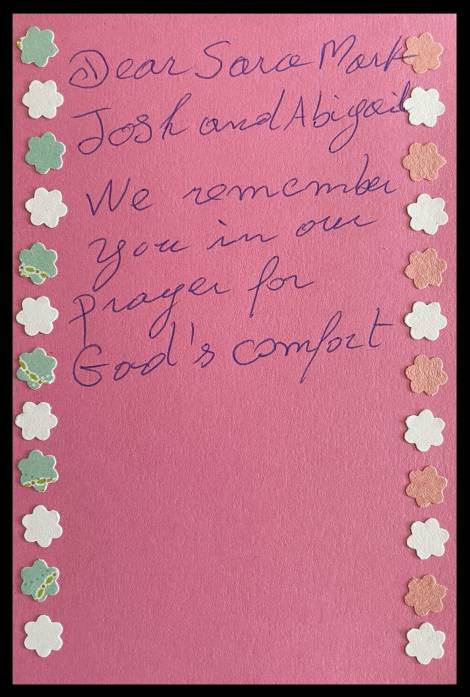 Dear Sara Mark
Josh and Abigail
We remember
you in our
prayer for
God's comfort